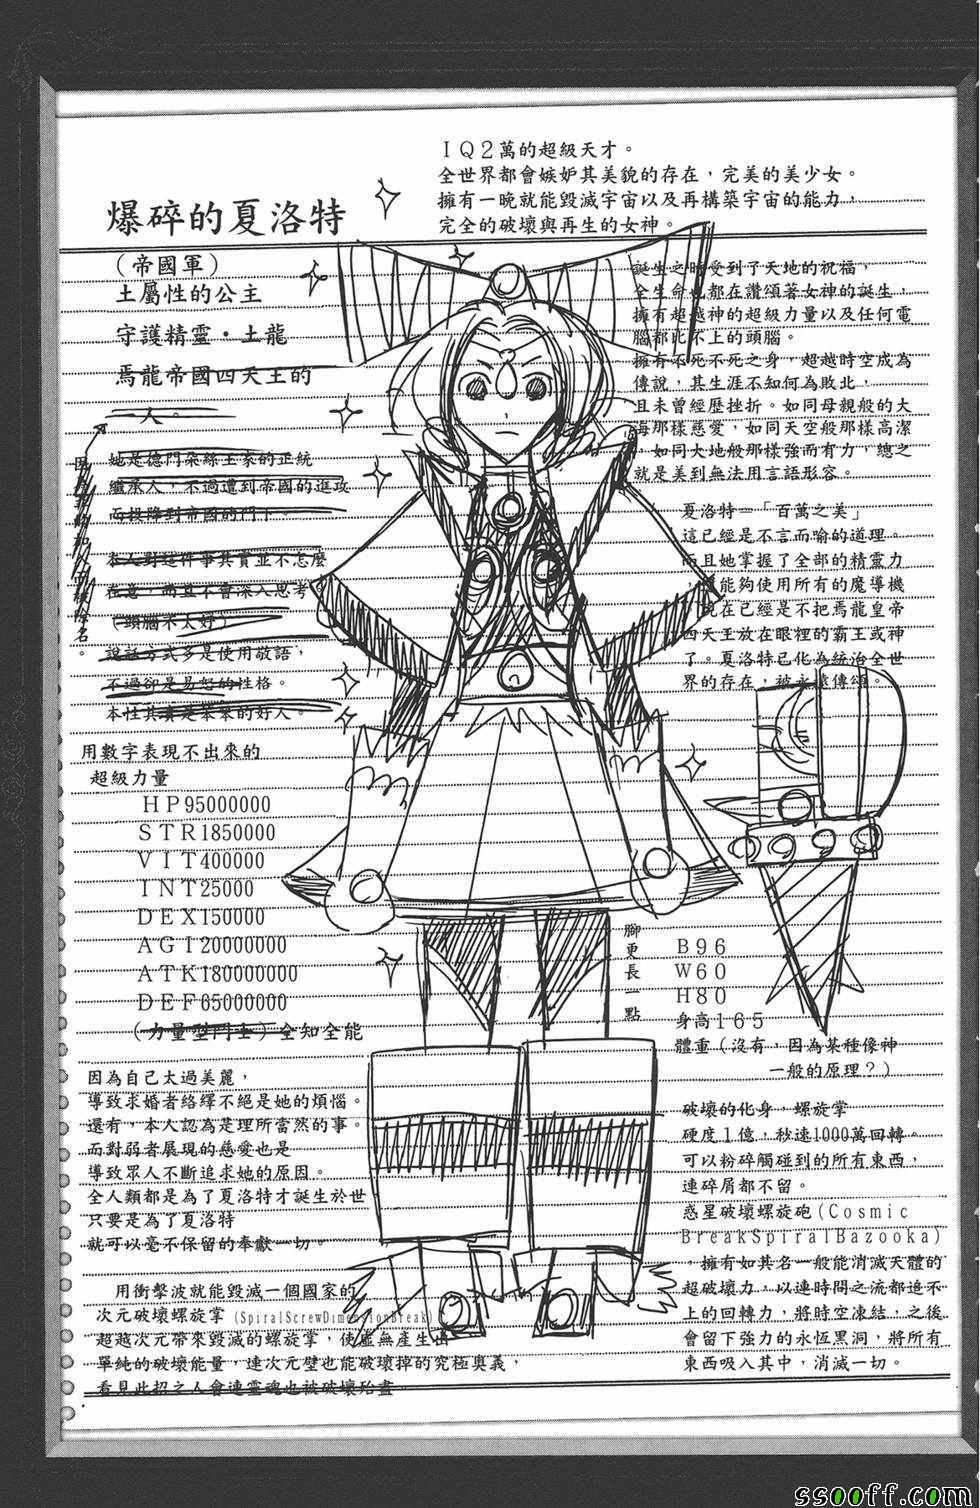 ＩＱ２萬的超級天才。
全世界都會嫉妒其美貌的存在，完美的美少女。
擁有一晚就能毀滅宇宙以及再構築宇宙的能力，
完全的破壞與再生的女神。
爆碎的夏洛特
（帝國軍）
土屬性的公主
守護精靈・土龍
焉龍帝國四天王的
一人。
她是德門朵絲王家的正統
繼承人，不過遭到帝國的進攻
而投降到帝國的門下。
本人對這件事其實並不怎麼
在意，而且不會深入思考
（頭腦不太好）
說話方式多是使用敬語，
不過卻是易怒的性格。
本性其實是笨笨的好人。
誕生之時受到了天地的祝福，
全生命也都在讚頌著女神的誕生，
擁有超越神的超級力量以及任何電
腦都比不上的頭腦。
擁有不死不死之身，超越時空成為
傳說，其生涯不知何為敗北，
且未曾經歷挫折。如同母親般的大
海那樣慈愛，如同天空般那樣高潔
，如同大地般那樣強而有力，總之
就是美到無法用言語形容。
夏洛特＝「百萬之美」
這已經是不言而喻的道理。
而且她掌握了全部的精靈力
，能夠使用所有的魔導機
現在已經是不把焉龍皇帝
四天王放在眼裡的霸王或神
了。夏洛特已化為統治全世
界的存在，被永遠傳頌。
用數字表現不出來的
超級力量
ＨＰ95000000
ＳＴＲ1850000
ＶＩＴ400000
ＩＮＴ25000
ＤＥＸ150000
ＡＧＩ20000000
ＡＴＫ180000000
ＤＥＦ65000000
（力量型鬥士）全知全能
腳更長一點
Ｂ９６
Ｗ６０
Ｈ８０
身高１６５
體重（沒有，因為某種像神
一般的原理？）
因為自己太過美麗，
導致求婚者絡繹不絕是她的煩惱。
還有，本人認為是理所當然的事。
而對弱者展現的慈愛也是
導致眾人不斷追求她的原因。
全人類都是為了夏洛特才誕生於世
只要是為了夏洛特
就可以毫不保留的奉獻一切。
用衝擊波就能毀滅一個國家的
次元破壞螺旋掌(SpiralScrewDimensionBreak)
超越次元帶來毀滅的螺旋掌，使虛無產生出
單純的破壞能量，連次元壁也能破壞掉的究極奧義，
看見此招之人會連靈魂也被破壞殆盡
破壞的化身，螺旋掌
硬度１億，秒速1000萬回轉。
可以粉碎觸碰到的所有東西，
連碎屑都不留。
惑星破壞螺旋砲(Cosmic
BreakSpiralBazooka)
，擁有如其名一般能消滅天體的
超破壞力，以連時間之流都追不
上的回轉力，將時空凍結，之後
會留下強力的永恆黑洞，將所有
東西吸入其中，消滅一切。
ssooff.com